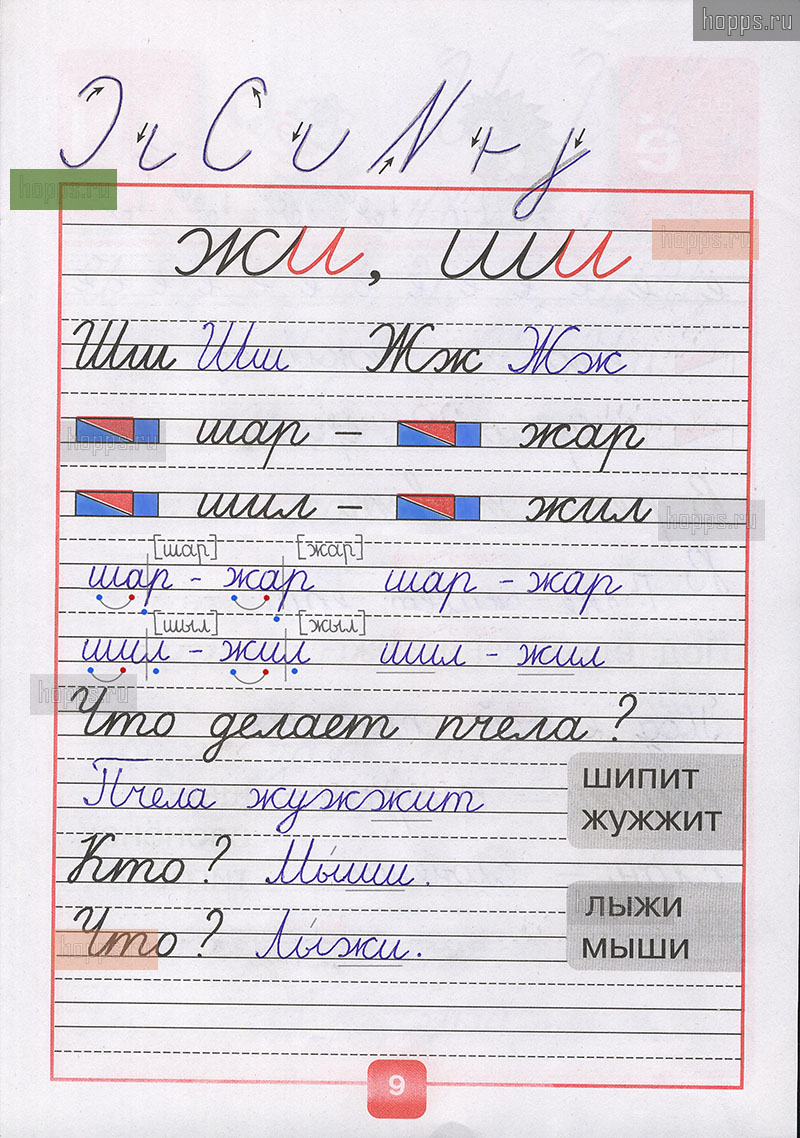 hopps.ru
hopps.ru
жи, ши
hopps.ru
Шш Шш Жж Жж
шар – жар
hopps.ru
шил – жил
hopps.ru
[шар] [жар]
шар - жар шар - жар
[шыл] [жыл]
шил - жил шил - жил
hopps.ru
Что делает пчела?
шипит
Пчела жужжит
жужжит
Кто? Мыши.
лыжи
Что? Лыжи.
мыши
9